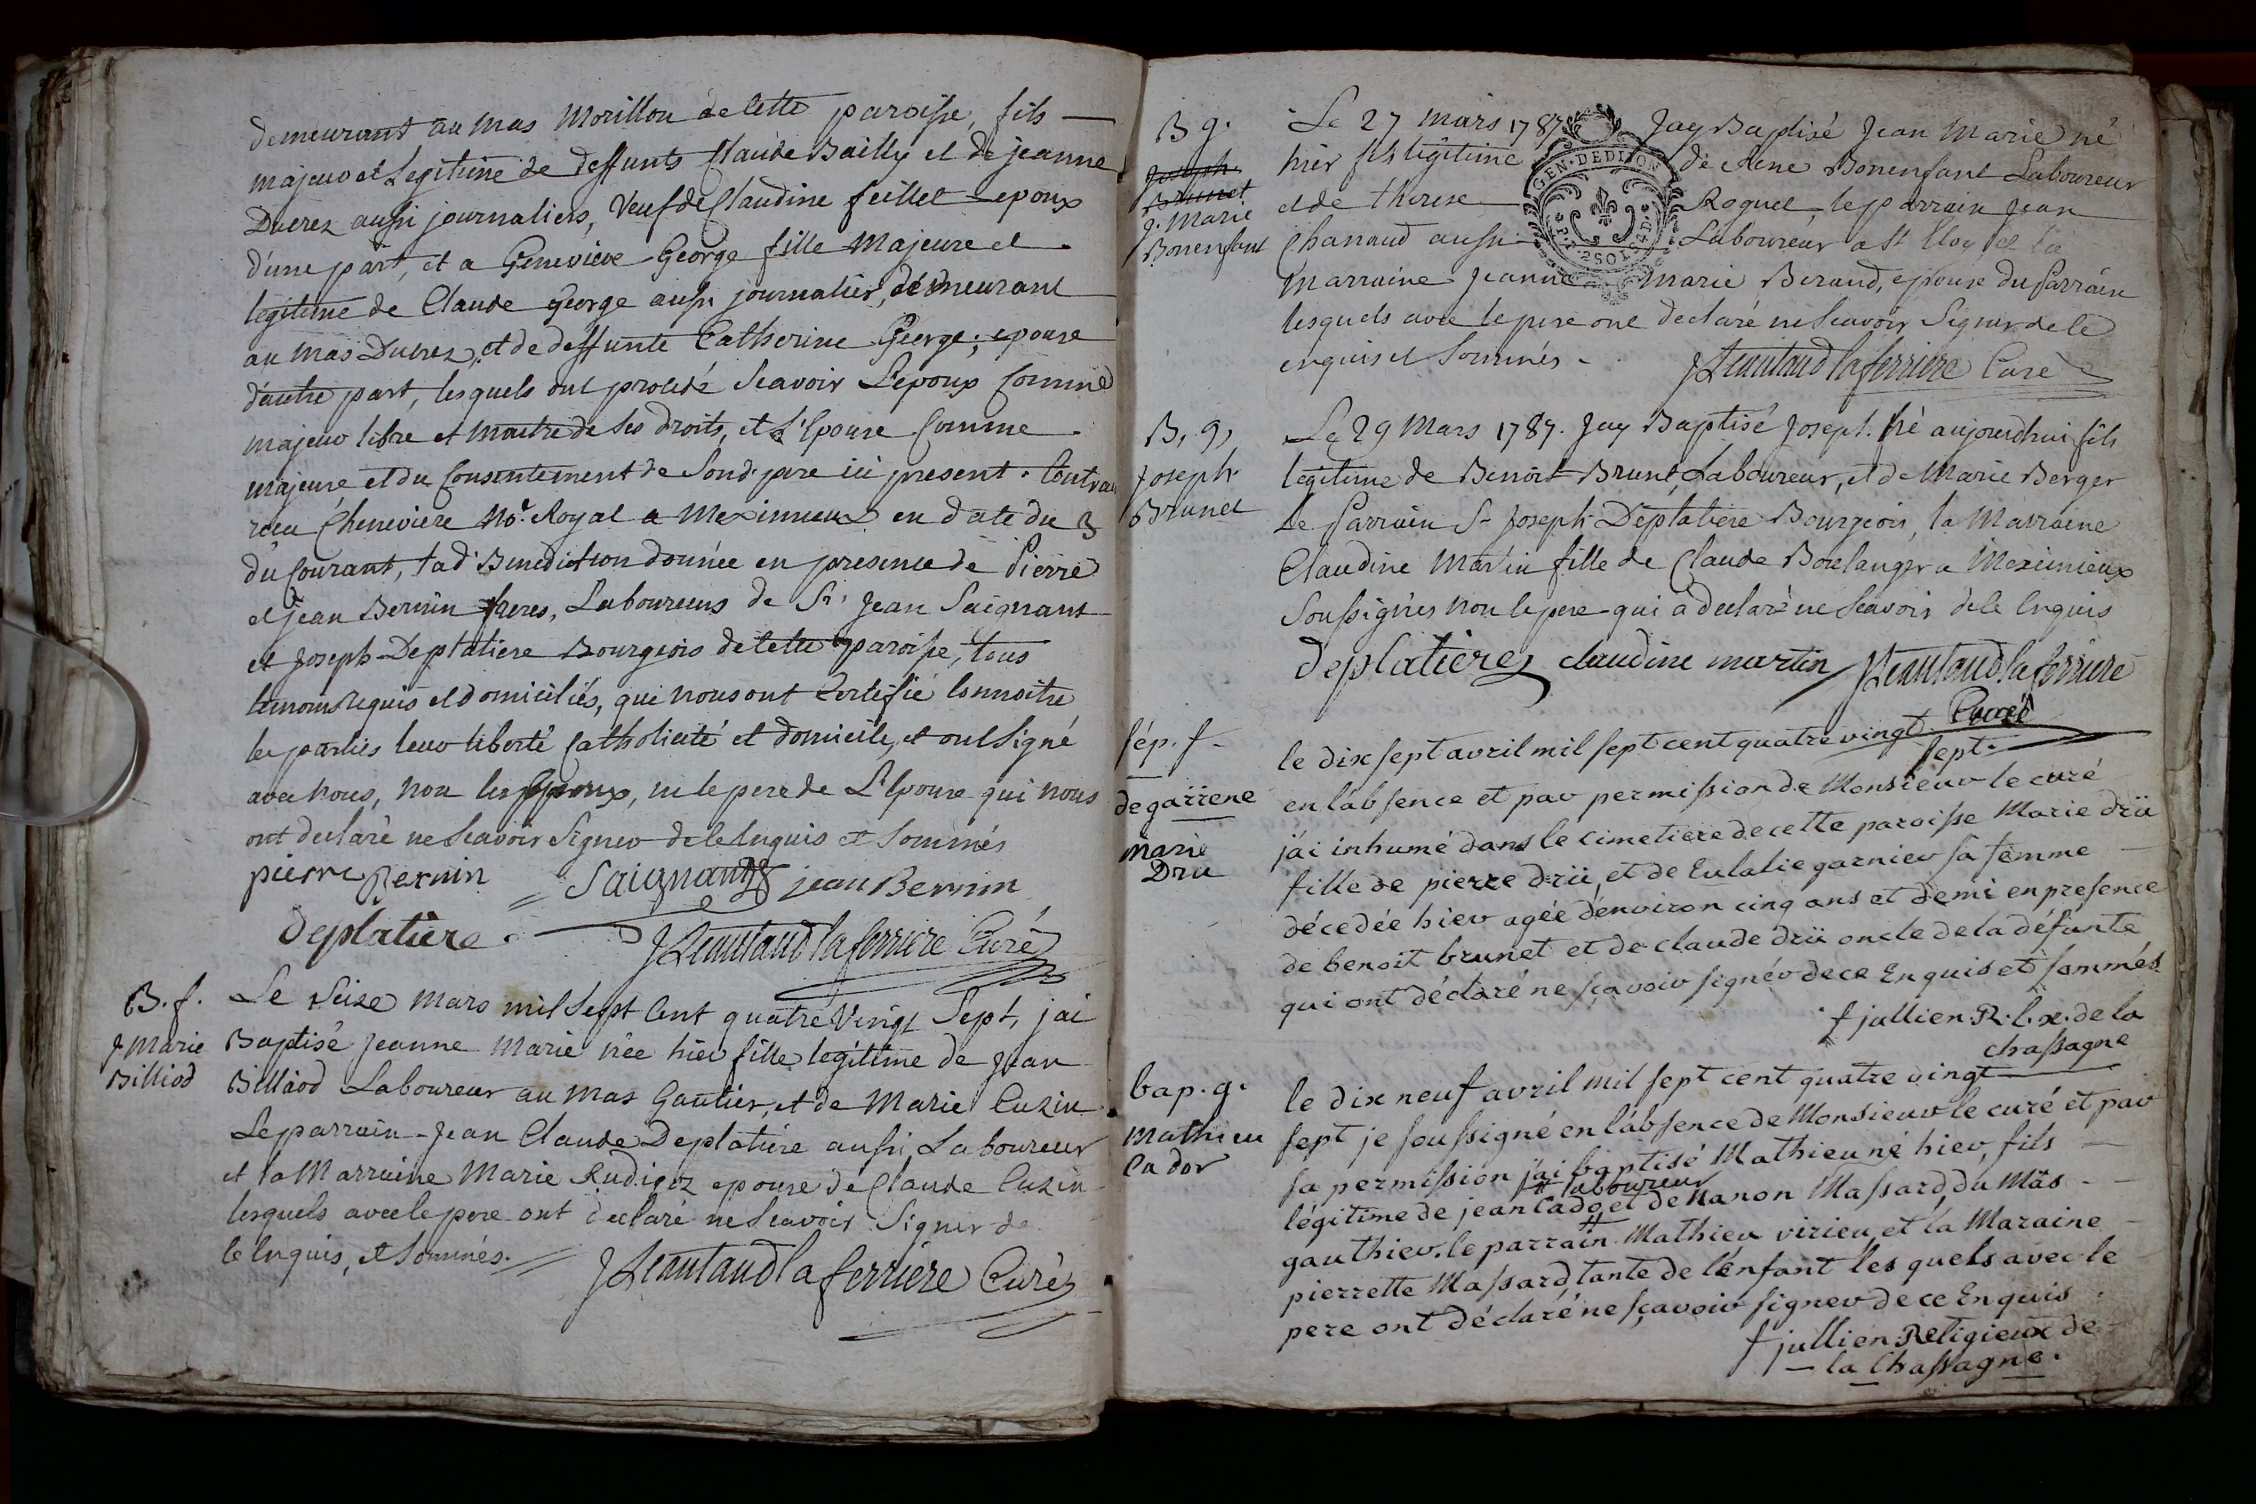 demeurant au mas Morillon de Cette paroisse, fils
majeur et Legitime de deffunts Claude Bailly et de jeanne
Ducrez aussi journaliers, Veuf de Claudine feillet Epoux
d'une part, et a Genevieve George fille Majeure et
legitime de Claude George aussi journalier, demeurant
au mas Ducrez, et de deffunte Catherine George, epouse
d'autre part, lesquels ont procédé Scavoir L'epoux Comme
majeur libre et maitre de ses droits, et L'Epouse Comme
majeure et du Consentement de Sond. pere ici present. Contrat
recu Cheneviere No.re Royal a Meximieux en date du 3
du Courant, lad. Benediction donnée en presence de Pierre
et jean Bernin freres, Laboureurs de Sr. Jean Saignant
et Joseph Deplatiere Bourgeois de Cette paroisse, tous
temoins requis et domiciliés, qui nous ont Certifié Connoitre
les parties leur liberté Catholicité et domicile, et ont Signé
avec nous, non les Epoux, ni le pere de L'Epouse qui nous
ont declaré ne Scavoir Signer de Ce Enquis et Sommés
pierre Bernin Saignant jean Bernin
Deplatière.
JLeautaud laferriere Curé
B. f.
J Marie
Billiod
Le Seize Mars mil Sept Cent quatre Vingt Sept, j'ai
Baptisé Jeanne Marie née hier fille legitime de Jean
Billiod Laboureur au Mas Gautier, et de Marie Cuzin
Le parrain Jean Claude Deplatiére aussi Laboureur
et la Marraine Marie Rudigoz epouse de Claude Cuzin
lesquels avec le pere ont declaré ne Scavoir Signer de
Ce Enquis, et Sommés.
JLeautaud laferriere Curé
B g.
Joseph
Brunet
J. Marie
Bonenfant
Le 27 Mars 1787 Jay Baptisé Jean Marie né
hier fils legitime de Rene Bonenfant Laboureur
et de therese Roquet, le parrain Jean
Chanaud aussi Laboureur a St Eloy et la
Marraine Jeanne Marie Beraud, epouse du Parrain
lesquels avec le pere ont declaré ne Scavoir Signer de Ce
enquis et Sommés.
GEN. DE DIJON
JLeautaud laferriere Curé
B. g.
Joseph
Brunet
Le 29 Mars 1787. Jay Baptisé Joseph né aujourdhui fils
légitime de Benoit Brunet Laboureur, et de Marie Berger
Le Parrain Sr Joseph Deplatiere Bourgeois, la Marraine
Claudine Martin fille de Claude Boulanger a Meximieux
Soussignés non le pere qui a declaré ne Scavoir de Ce Enquis
deplatiere claudine martin JLeautaud laferriere
Curé
sép. f.
degarrene
marie
Dru
le dix sept avril mil sept cent quatre vingt
sept.
en l'absence et par permission de Monsieur le curé
j'ai inhumé dans le cimetiere de cette paroisse Marie drü
fille de pierre drü, et de Eulalie garnier sa femme
décedée hier agée d'environ cinq ans et demi en presence
de benoit brunet et de claude drü oncle de la défunte
qui ont déclaré ne sçavoir signér de ce Enquis et sommés
f jullien R. l. x. de la
chassagne
bap. g.
Mathieu
Cador
le dix neuf avril mil sept cent quatre vingt
sept je soussigné en l'absence de Monsieur le curé et par
sa permission j'ai baptisé Mathieu né hier, fils
# laboureur
légitime de jean Cador et de Nanon Massard, du Mas
gauthier. le parrain Mathieu virieu, et la Maraine
pierrette Massard, tante de l'enfant lesquels avec le
pere ont déclaré ne sçavoir signer de ce Enquis
f jullien Religieux de
la Chassagne.